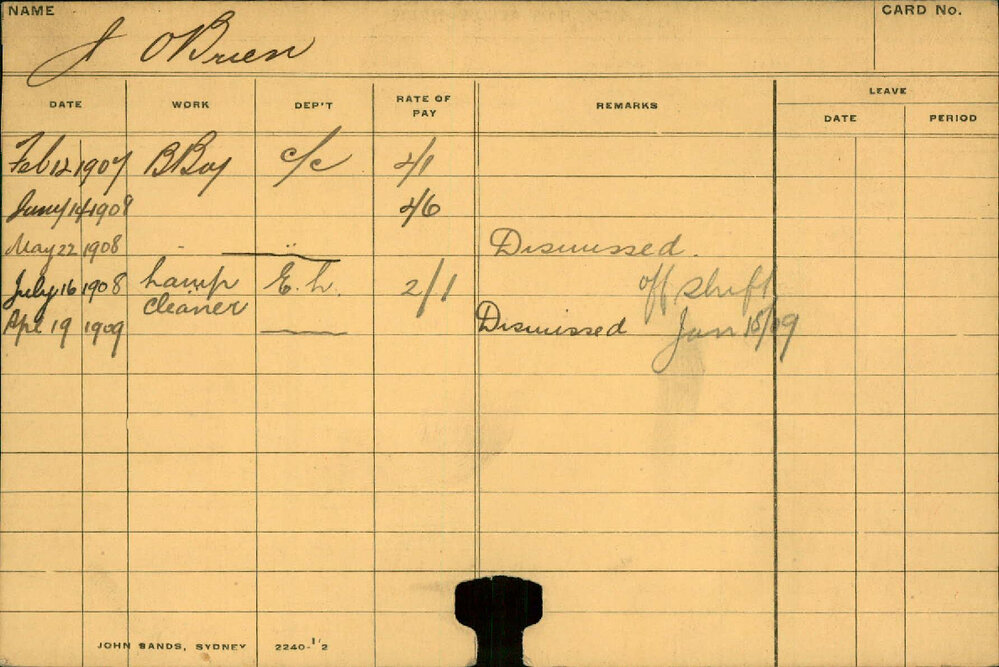 NAME
J OBrien
CARD No.
DATE WORK DEP'T RATE OF PAY REMARKS LEAVE
DATE PERIOD
Feb 12 1907 BBoy c/c 2/1
14 1908 2/6
May 22 1908 - " Dismissed.
July 16 1908 Lamp cleaner E. L. 2/1 off shift
Apl 19 1909 Dismissed Jan 15/09
JOHN SANDS, SYDNEY 2240-1/2